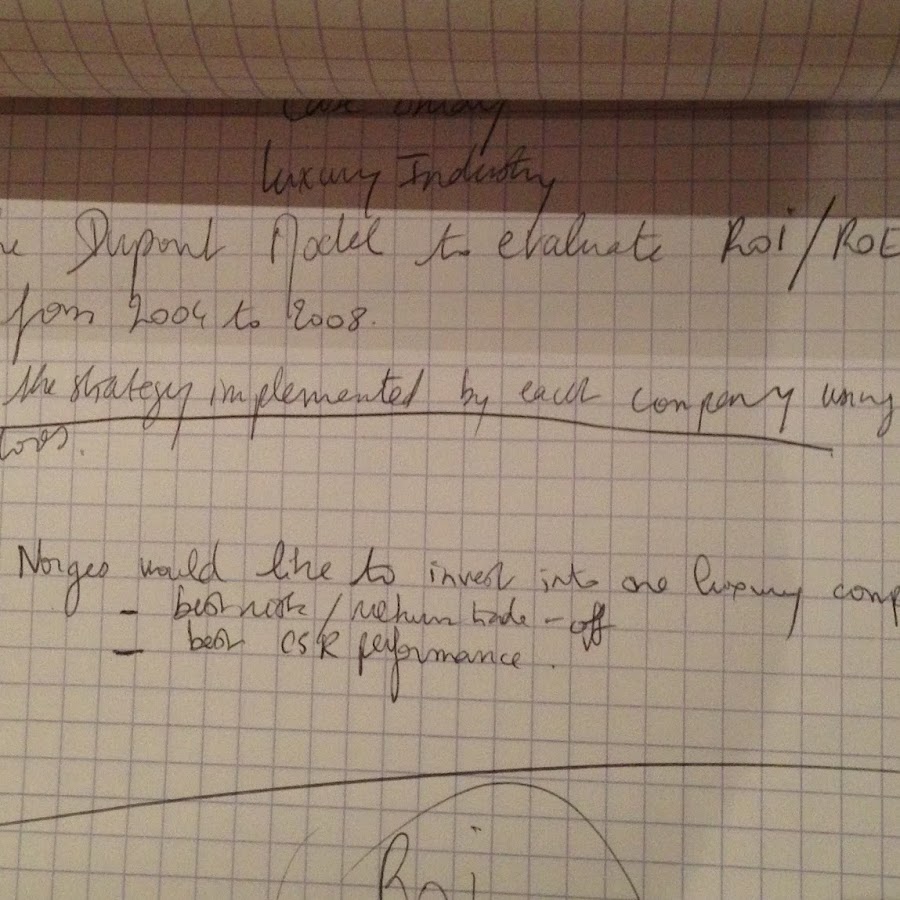 Luxury Industry
Dupont Model to evaluate RoI/ROE
from 2004 to 2008.
the strategy implemented by each company using
Norges would like to invest into one luxury comp
- best risk/return trade-off
- best CSR performance.
Roi